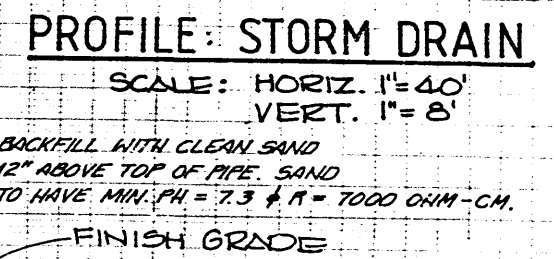 PROFILE: STORM DRAIN
SCALE: HORIZ. 1"=40'
VERT. 1"=8'
BACKFILL WITH CLEAN SAND
12" ABOVE TOP OF PIPE. SAND
TO HAVE MIN. PH = 7.3 & R = 7000 OHM-CM.
FINISH GRADE